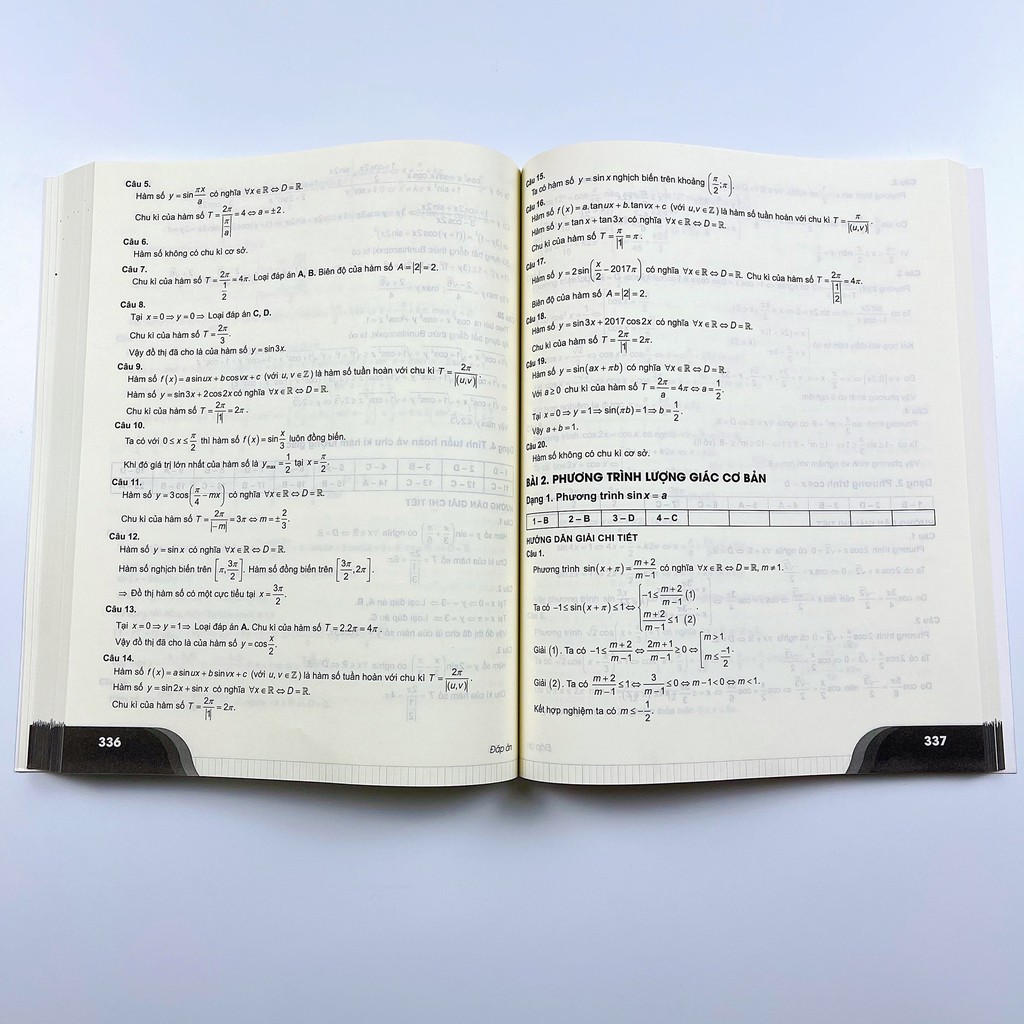 Câu 5.
Hàm số y = sin πx/a có nghĩa ∀x ∈ ℝ ⇔ D = ℝ.
Chu kì của hàm số T = 2π/|π/a| = 4 ⇔ a = ±2.
Câu 6.
Hàm số không có chu kì cơ sở.
Câu 7.
Chu kì của hàm số T = 2π/(1/2) = 4π. Loại đáp án A, B. Biên độ của hàm số A = |2| = 2.
Câu 8.
Tại x = 0 ⇒ y = 0 ⇒ Loại đáp án C, D.
Chu kì của hàm số T = 2π/3.
Vậy đồ thị đã cho là của hàm số y = sin3x.
Câu 9.
Hàm số f(x) = a sinux + b cosvx + c (với u, v ∈ ℤ) là hàm số tuần hoàn với chu kì T = 2π/|(u,v)|.
Hàm số y = sin3x + 2cos2x có nghĩa ∀x ∈ ℝ ⇔ D = ℝ.
Chu kì của hàm số T = 2π/|1| = 2π.
Câu 10.
Ta có với 0 ≤ x ≤ π/2 thì hàm số f(x) = sin x/3 luôn đồng biến.
Khi đó giá trị lớn nhất của hàm số là ymax = 1/2 tại x = π/2.
Câu 11.
Hàm số y = 3cos(π/4 − mx) có nghĩa ∀x ∈ ℝ ⇔ D = ℝ.
Chu kì của hàm số T = 2π/|−m| = 3π ⇔ m = ±2/3.
Câu 12.
Hàm số y = sin x có nghĩa ∀x ∈ ℝ ⇔ D = ℝ.
Hàm số nghịch biến trên [π, 3π/2]. Hàm số đồng biến trên [3π/2, 2π].
⇒ Đồ thị hàm số có một cực tiểu tại x = 3π/2.
Câu 13.
Tại x = 0 ⇒ y = 1 ⇒ Loại đáp án A. Chu kì của hàm số T = 2.2π = 4π.
Vậy đồ thị đã cho là của hàm số y = cos x/2.
Câu 14.
Hàm số f(x) = a sinux + b sinvx + c (với u, v ∈ ℤ) là hàm số tuần hoàn với chu kì T = 2π/|(u,v)|.
Hàm số y = sin2x + sin x có nghĩa ∀x ∈ ℝ ⇔ D = ℝ.
Chu kì của hàm số T = 2π/|1| = 2π.
336
Đáp án
Câu 15.
Ta có hàm số y = sin x nghịch biến trên khoảng (π/2; π).
Câu 16.
Hàm số f(x) = a.tan ux + b.tan vx + c (với u, v ∈ ℤ) là hàm số tuần hoàn với chu kì T = π/|(u,v)|.
Hàm số y = tan x + tan3x có nghĩa ∀x ∈ ℝ ⇔ D = ℝ.
Chu kì của hàm số T = π/|1| = π.
Câu 17.
Hàm số y = 2sin(x/2 − 2017π) có nghĩa ∀x ∈ ℝ ⇔ D = ℝ. Chu kì của hàm số T = 2π/|1/2| = 4π.
Biên độ của hàm số A = |2| = 2.
Câu 18.
Hàm số y = sin3x + 2017cos2x có nghĩa ∀x ∈ ℝ ⇔ D = ℝ.
Chu kì của hàm số T = 2π/|1| = 2π.
Câu 19.
Hàm số y = sin(ax + πb) có nghĩa ∀x ∈ ℝ ⇔ D = ℝ.
Với a ≥ 0 chu kì của hàm số T = 2π/a = 4π ⇔ a = 1/2.
Tại x = 0 ⇒ y = 1 ⇒ sin(πb) = 1 ⇒ b = 1/2.
Vậy a + b = 1.
Câu 20.
Hàm số không có chu kì cơ sở.
BÀI 2. PHƯƠNG TRÌNH LƯỢNG GIÁC CƠ BẢN
Dạng 1. Phương trình sin x = a
1 – B 2 – B 3 – D 4 – C
HƯỚNG DẪN GIẢI CHI TIẾT
Câu 1.
Phương trình sin(x + π) = (m+2)/(m−1) có nghĩa ∀x ∈ ℝ ⇔ D = ℝ, m ≠ 1.
Ta có −1 ≤ sin(x + π) ≤ 1 ⇔ { −1 ≤ (m+2)/(m−1) (1)
(m+2)/(m−1) ≤ 1 (2)
Giải (1). Ta có −1 ≤ (m+2)/(m−1) ⇔ (2m+1)/(m−1) ≥ 0 ⇔ [ m > 1
m ≤ −1/2.
Giải (2). Ta có (m+2)/(m−1) ≤ 1 ⇔ 3/(m−1) ≤ 0 ⇔ m − 1 < 0 ⇔ m < 1.
Kết hợp nghiệm ta có m ≤ −1/2.
337